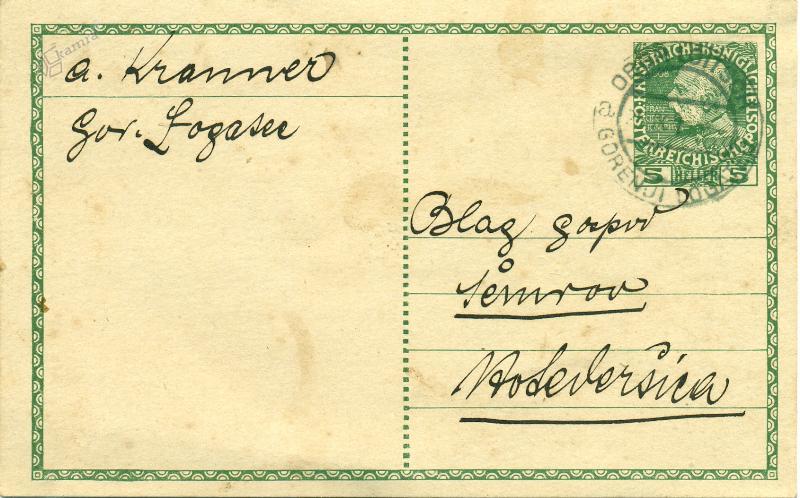 kamra
a. Kranner
Gor. Logatec
KAISERLICHE KÖNIGLICHE
ÖSTERREICHISCHE POST
5 HELLER 5
GORENJI LOGATEC
a
Blag gospod
Šemrov
Hotederšica